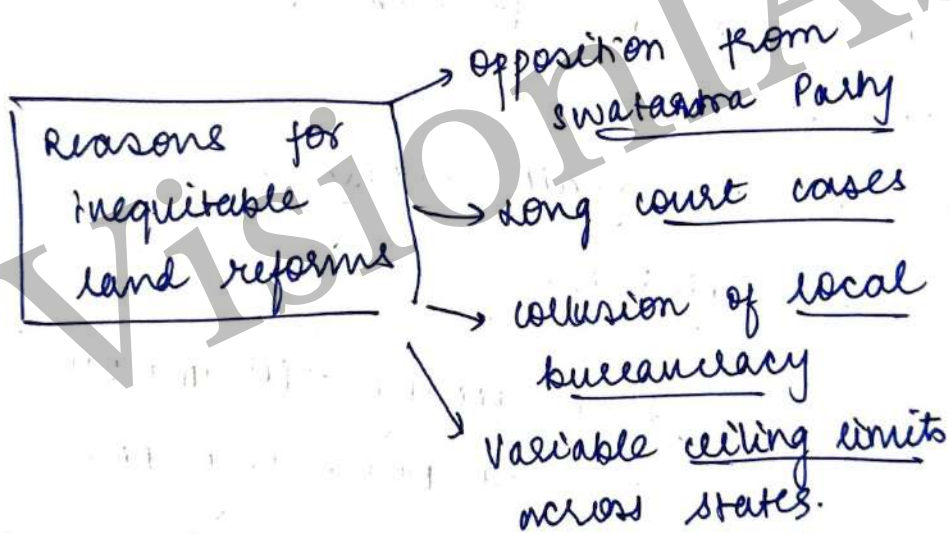 Reasons for
inequitable
land reforms
opposition from
swatantra Party
Long court cases
collusion of local
bureaucracy
Variable ceiling limits
across states.
VisionIAS